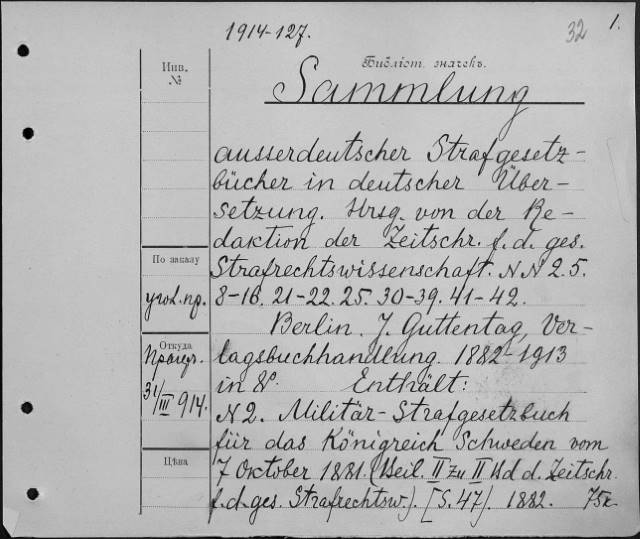 1914-127.
32
1.
Инв. №
Библіот. значекъ.
Sammlung
ausserdeutscher Strafgesetz-
bücher in deutscher Über-
setzung. Hrsg. von der Re-
daktion der Zeitschr. f. d. ges.
По заказу
Strafrechtswissenschaft. NN 2. 5.
угол. пр.
8-16. 21-22. 25. 30-39. 41-42.
Berlin. J. Guttentag, Ver-
Откуда
lagsbuchhandlung. 1882-1913
31/III 914.
in 8°. Enthält:
N 2. Militär-Strafgesetzbuch
für das Königreich Schweden vom
Цѣна
7 Oktober 1881. (Beil. II zu II Bd d. Zeitschr.
f. d. ges. Strafrechtsw.). [S. 47]. 1882.